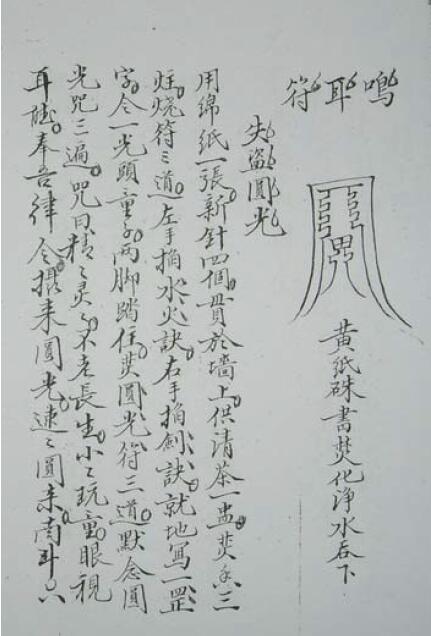 鳴耳符
黃紙硃書焚化净水吞下
失盜圓光
用綿紙一張。新針四個。貫於墻上。供清茶一盅。焚香三
炷。燒符三道。左手掐水火訣。右手掐劍訣。就地寫一罡
字。令一光頭童子。兩脚踏住。焚圓光符三道。默念圓
光咒三遍。咒曰。精精灵灵。不老長生。小小玩童。眼視
耳聴。奉吾律令。攝来圓光。速速圓来。南斗六